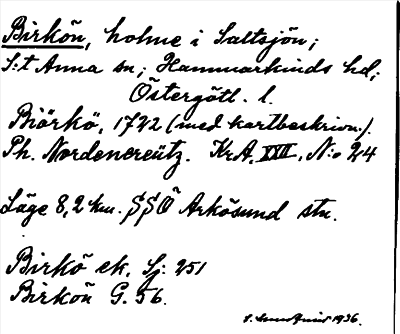 Birkön, holme i Saltsjön;
S:t Anna sn; Hammarkinds hd;
Östergötl. l.
Biörkö, 1722 (med kartbeskrivn.).
Ph. Nordencreütz. KrA, XXII, N:o 24
Läge 8,2 km. SSÖ Arkösund stn.
Birkö ek. Sj. 251
Birkön G. 56.
1936.